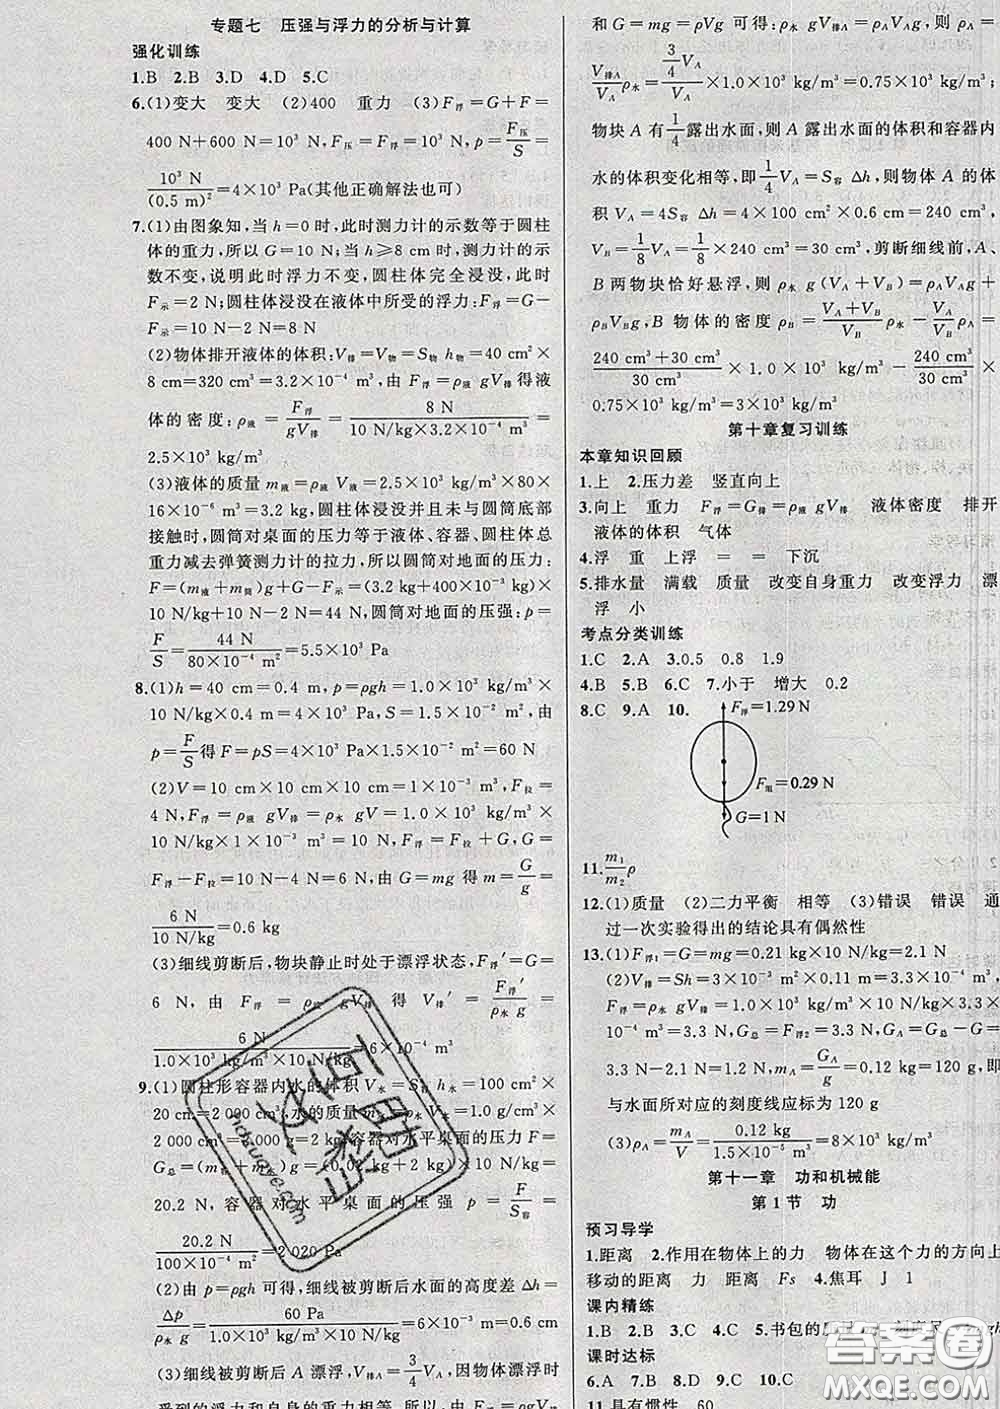 专题七 压强与浮力的分析与计算
强化训练
1.B 2.B 3.D 4.D 5.C
6.(1)变大 变大 (2)400 重力 (3)F浮=G+F=
400 N+600 N=10³ N,F压=F浮=10³ N,p=F压/S=
10³ N/(0.5 m)²=4×10³ Pa(其他正确解法也可)
7.(1)由图象知,当 h=0时,此时测力计的示数等于圆柱
体的重力,所以 G=10 N;当 h≥8 cm时,测力计的示
数不变,说明此时浮力不变,圆柱体完全浸没,此时
F示=2 N;圆柱体浸没在液体中所受的浮力:F浮=G-
F示=10 N-2 N=8 N
(2)物体排开液体的体积:V排=V物=S物 h物=40 cm²×
8 cm=320 cm³=3.2×10⁻⁴ m³,由 F浮=ρ液 gV排得液
体的密度:ρ液=F浮/gV排=8 N/(10 N/kg×3.2×10⁻⁴ m³)=
2.5×10³ kg/m³
(3)液体的质量 m液=ρ液 V液=2.5×10³ kg/m³×80×
16×10⁻⁶ m³=3.2 kg,圆柱体浸没并且未与圆筒底部
接触时,圆筒对桌面的压力等于液体、容器、圆柱体总
重力减去弹簧测力计的拉力,所以圆筒对地面的压力:
F=(m液+m筒)g+G-F示=(3.2 kg+400×10⁻³ kg)×
10 N/kg+10 N-2 N=44 N,圆筒对地面的压强:p=
F/S=44 N/(80×10⁻⁴ m²)=5.5×10³ Pa
8.(1)h=40 cm=0.4 m,p=ρgh=1.0×10³ kg/m³×10
N/kg×0.4 m=4×10³ Pa,S=1.5×10⁻² m²,由
p=F/S得 F=pS=4×10³ Pa×1.5×10⁻² m²=60 N
(2)V=10 cm×10 cm×10 cm=1×10⁻³ m³,F拉=
4 N,F浮=ρ液 gV排=ρ水 gV=1.0×10³ kg/m³×
10 N/kg×1×10⁻³ m³=10 N,F浮=F拉+G,G=
F浮-F拉=10 N-4 N=6 N,由 G=mg 得 m=G/g=
6 N/10 N/kg=0.6 kg
(3)细线剪断后,物块静止时处于漂浮状态,F浮′=G=
6 N,由 F浮′=ρ水 gV排′得 V排′=F浮′/ρ水 g=
6 N/(1.0×10³ kg/m³×10 N/kg)=6×10⁻⁴ m³
9.(1)圆柱形容器内水的体积 V水=S容 h水=100 cm²×
20 cm=2 000 cm³,水的质量 m水=ρ水 V水=1.0 g/cm³
×2 000 cm³=2 000 g=2 kg,容器对水平桌面的压力 F=
G总=(m容+m水)g=(0.02 kg+2 kg)×10 N/kg=
20.2 N,容器对水平桌面的压强 p=F/S容=
20.2 N/(100×10⁻⁴ m²)=2 020 Pa
(2)由 p=ρgh 可得,细线被剪断后水面的高度差 Δh=
Δp/ρ水 g=60 Pa/(1.0×10³ kg/m³×10 N/kg)=6×10⁻³ m=0.6 cm
(3)细线被剪断后 A 漂浮,V排=3/4 V_A,因物体漂浮时
受到的浮力和自身的重力相等,所以由 F浮=ρ水 gV排
和 G=mg=ρVg 可得 ρ水 gV排A=ρ_A V_A g,ρ_A=
V排A/V_A ρ水=(3/4 V_A)/V_A×1.0×10³ kg/m³=0.75×10³ kg/m³
物块 A 有1/4露出水面,则 A 露出水面的体积和容器内
水的体积变化相等,即1/4 V_A=S容 Δh,则物块 A 的体
积 V_A=4S容 Δh=4×100 cm²×0.6 cm=240 cm³,
V_B=1/8 V_A=1/8×240 cm³=30 cm³,剪断细线前,A、
B 两物块恰好悬浮,则 ρ水 g(V_A+V_B)=ρ_A V_A g+
ρ_B V_B g,B 物体的密度 ρ_B=(V_A+V_B)/V_B ρ水-V_A/V_B ρ_A=
(240 cm³+30 cm³)/30 cm³×1.0×10³ kg/m³-240 cm³/30 cm³×
0.75×10³ kg/m³=3×10³ kg/m³
第十章复习训练
本章知识回顾
1.上 2.压力差 竖直向上
3.向上 重力 F浮=G排=ρ液 gV排 液体密度 排开
液体的体积 气体
4.浮 重 上浮 = = 下沉
5.排水量 满载 质量 改变自身重力 改变浮力 漂
浮 小
考点分类训练
1.C 2.A 3.0.5 0.8 1.9
4.B 5.B 6.C 7.小于 增大 0.2
8.C 9.A 10.
F浮=1.29 N
F阻=0.29 N
G=1 N
11.m₁/m₂ ρ
12.(1)质量 (2)二力平衡 相等 (3)错误 错误 通
过一次实验得出的结论具有偶然性
13.(1)F浮1=G=mg=0.21 kg×10 N/kg=2.1 N
(2)V排=Sh=3×10⁻³ m²×0.11 m=3.3×10⁻⁴ m³
F浮=ρ水 gV排=1.0×10³ kg/m³×10 N/kg×3.3×
10⁻⁴ m³=3.3 N,G总=F浮2=3.3 N,G_A=G总-G=
3.3 N-2.1 N=1.2 N,m_A=G_A/g=0.12 kg=120 g,即
与水面所对应的刻度线应标为120 g
(3)ρ_A=m_A/V=0.12 kg/(1.5×10⁻⁵ m³)=8×10³ kg/m³
第十一章 功和机械能
第1节 功
预习导学
1.距离 2.作用在物体上的力 物体在这个力的方向上
移动的距离 力 距离 Fs 4.焦耳 J 1
课内精练
1.B 2.B 3.C 4.C 5.书包的
课时达标
6.A 7.B 8.B 9.C 10.C
11.具有惯性 60
答案圈
MXQE.COM